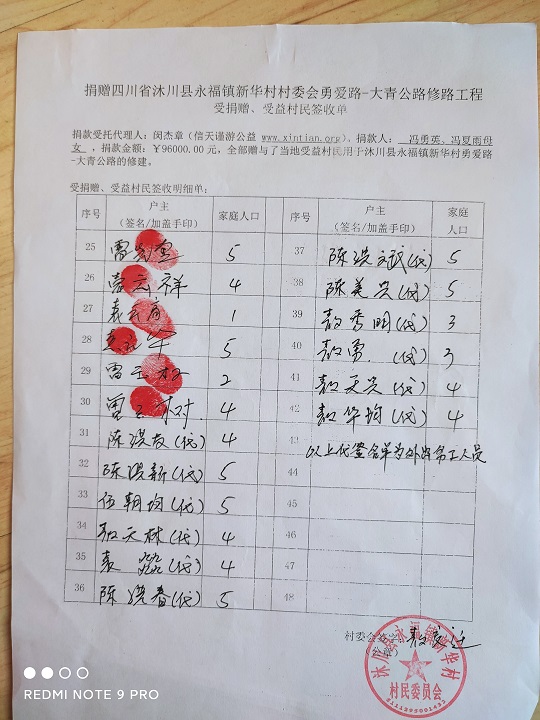 捐赠四川省沐川县永福镇新华村村委会勇爱路-大青公路修路工程
受捐赠、受益村民签收单
捐款受托代理人：闵杰章（信天谨游公益 www.xintian.org）、捐款人： 冯勇英、冯夏雨母
女 ，捐款金额：￥96000.00 元，全部赠与了当地受益村民用于沐川县永福镇新华村勇爱路
-大青公路的修建。
受捐赠、受益村民签收明细单：
序号 户主（签名/加盖手印） 家庭人口 序号 户主（签名/加盖手印） 家庭人口
25 5 37 陈洪斌(代) 5
26 云祥 4 38 陈美兴(代) 5
27 1 39 秀明(代) 3
28 5 40 勇(代) 3
29 雷 2 41 天兴(代) 4
30 树 4 42 华均(代) 4
31 陈洪友(代) 4 43 以上代签名单为外出务工人员
32 陈洪新(代) 5 44
33 伍朝均(代) 5 45
34 天林(代) 4 46
35 袁 (代) 4 47
36 陈洪春(代) 5 48
村委会
沐川县永福镇新华村
村民委员会
REDMI NOTE 9 PRO